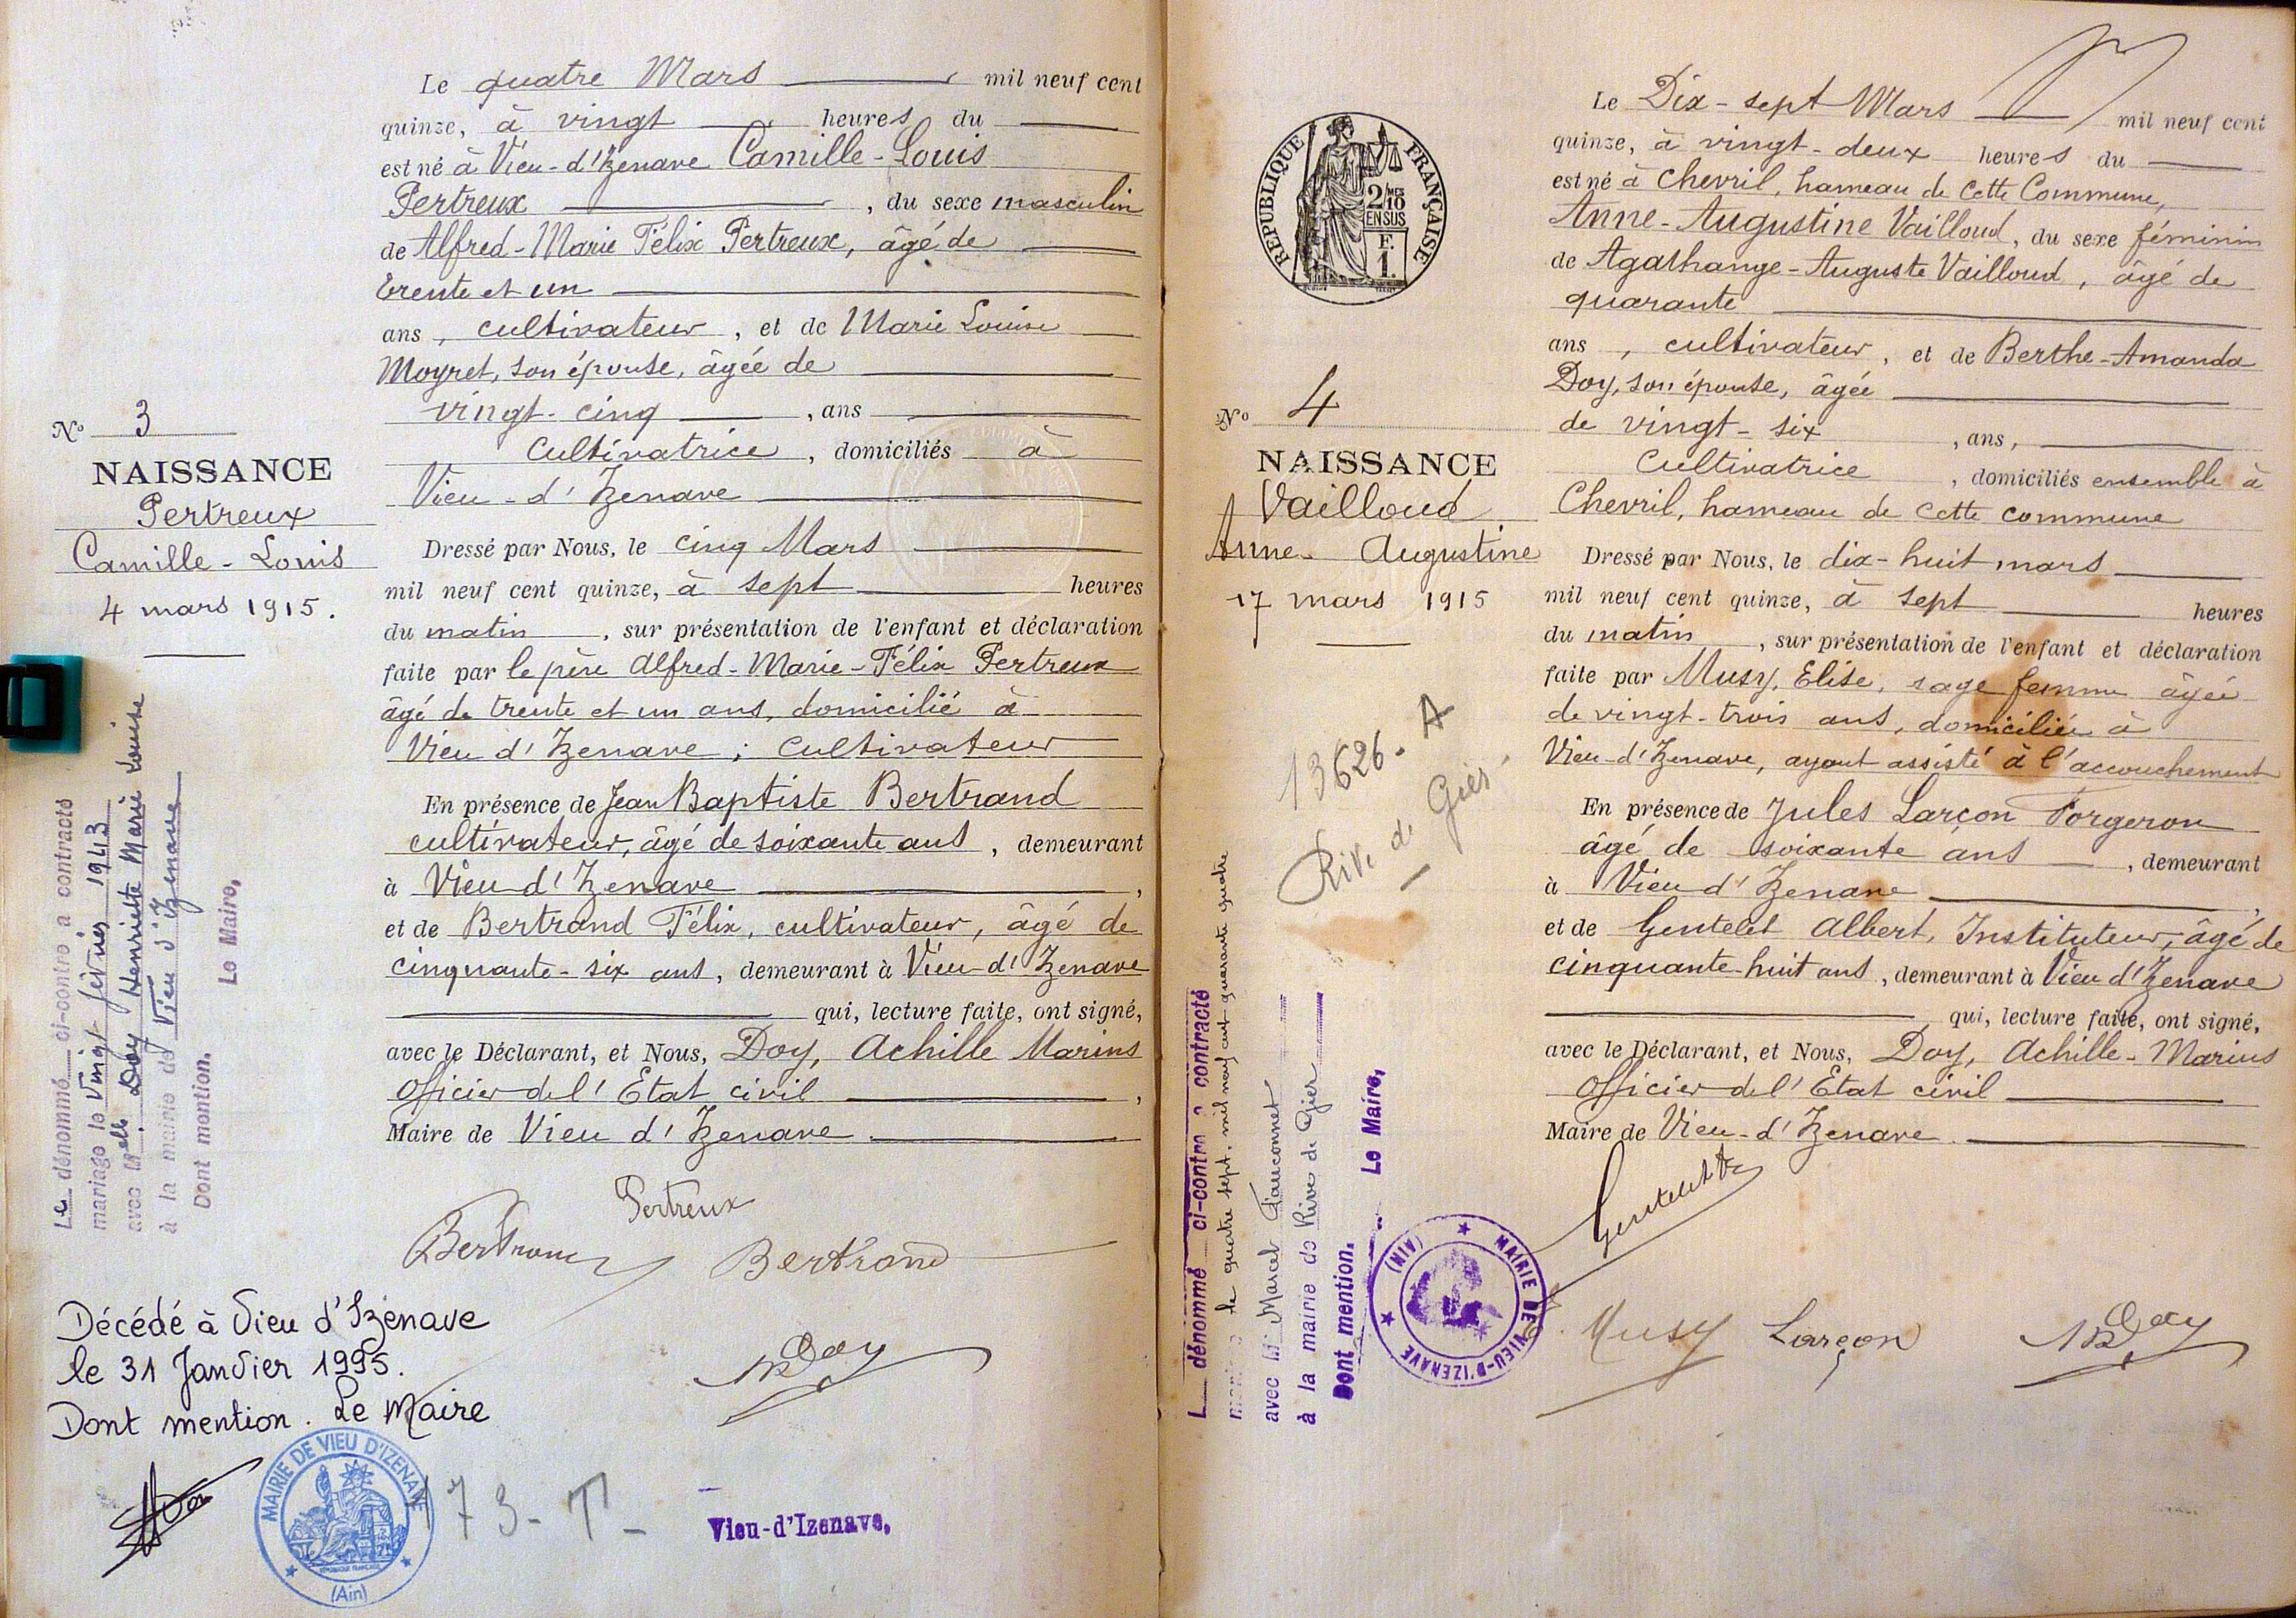 Le quatre Mars mil neuf cent
quinze, à vingt heures du
est né à Vieu-d'Izenave Camille-Louis
Pertreux, du sexe masculin
de Alfred-Marie Félix Pertreux, âgé de
trente et un
ans, cultivateur, et de Marie Louise
Moyret, son épouse, âgée de
vingt-cinq, ans
Cultivatrice, domiciliés à
Vieu-d'Izenave
No 3
NAISSANCE
Pertreux
Camille-Louis
4 mars 1915.
Dressé par Nous, le cinq Mars
mil neuf cent quinze, à sept heures
du matin, sur présentation de l'enfant et déclaration
faite par le père Alfred-Marie-Félix Pertreux
âgé de trente et un ans, domicilié à
Vieu d'Izenave; Cultivateur
En présence de Jean Baptiste Bertrand
cultivateur, âgé de soixante ans, demeurant
à Vieu d'Izenave,
et de Bertrand Félix, cultivateur, âgé de
cinquante-six ans, demeurant à Vieu-d'Izenave
qui, lecture faite, ont signé,
avec le Déclarant, et Nous, Doy, Achille Marius
Officier de l'Etat civil,
Maire de Vieu d'Izenave
Le dénommé ci-contre a contracté
mariage le Vingt février 1943
avec Melle Doy Henriette Marie Louise
à la mairie de Vieu d'Izenave
Dont mention. Le Maire,
Pertreux
Bertrand
Bertrand
Doy
Décédé à Vieu d'Izenave
le 31 Janvier 1995.
Dont mention. Le Maire
MAIRIE DE VIEU D'IZENAVE
(Ain)
173-T-
Vieu-d'Izenave,
REPUBLIQUE FRANÇAISE
2/10 MES
EN SUS
F.
1.
Le Dix-sept Mars mil neuf cent
quinze, à vingt-deux heures du
est né à Chevril, hameau de Cette Commune,
Anne-Augustine Vailloud, du sexe féminin
de Agathange-Auguste Vailloud, âgé de
quarante
ans, cultivateur, et de Berthe-Amanda
Doy, son épouse, âgée
de vingt-six, ans,
Cultivatrice, domiciliés ensemble à
Chevril, hameau de cette commune
No 4
NAISSANCE
Vailloud
Anne-Augustine
17 mars 1915
Dressé par Nous, le dix-huit mars
mil neuf cent quinze, à sept heures
du matin, sur présentation de l'enfant et déclaration
faite par Musy, Elise, sage femme âgée
de vingt-trois ans, domiciliée à
Vieu-d'Izenave, ayant assisté à l'accouchement
En présence de Jules Larçon Forgeron
âgé de soixante ans, demeurant
à Vieu d'Izenave,
et de Gentelet Albert, Instituteur, âgé de
cinquante-huit ans, demeurant à Vieu d'Izenave
qui, lecture faite, ont signé,
avec le Déclarant, et Nous, Doy, Achille-Marius
Officier de l'Etat civil
Maire de Vieu-d'Izenave
13626. A
Rive de Gier
L dénommé ci-contre a contracté
mariage le quatre sept. mil neuf cent quarante quatre
avec M Marcel Fauconnet
à la mairie de Rive de Gier
Dont mention. Le Maire,
MAIRIE DE VIEU-D'IZENAVE
(AIN)
Gentelet
Musy
Larçon
Doy